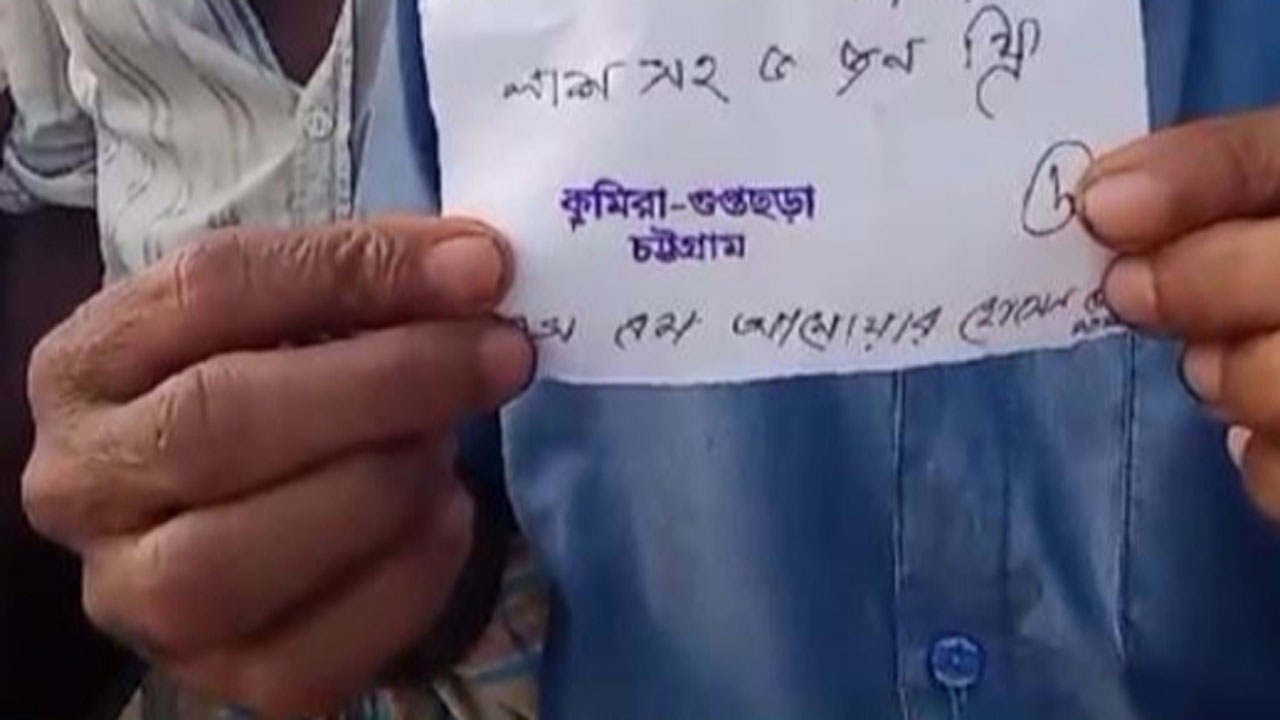 লাশ সহ ৫ জন ফ্রি
কুমিরা-গুপ্তছড়া
চট্টগ্রাম
এম এম আনোয়ার হোসেন